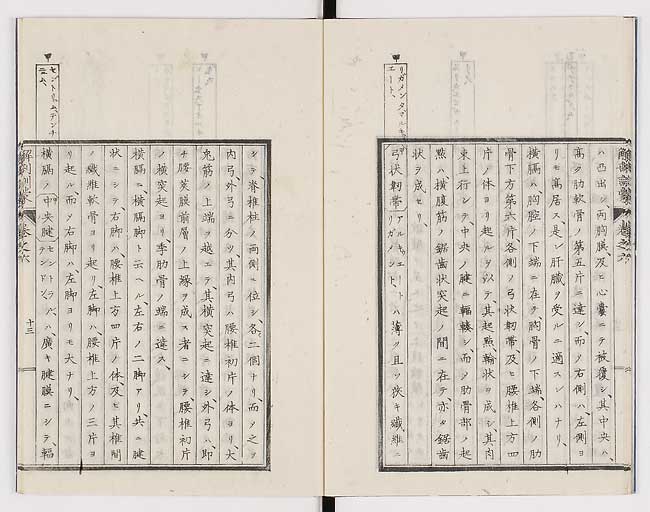 リガメンタ、アルキュエート、
ハ凸出シ、両胸膜、及ヒ心嚢ニテ被覆シ、其中央ハ、
高ク肋軟骨ノ第五片ニ達シ、而ノ右側ハ、左側ヨ
リモ高居ス、是レ肝臓ヲ受ルニ適スレハナリ、
横膈ハ、胸腔ノ下端ニ在テ、胸骨ノ下端、各側ノ肋
骨下方第六片、各側ノ弓状靭帯、及ヒ腰椎上方四
片ノ体ヨリ起ルヲ以テ、其起點、輪状ヲ成シ、其肉
束上行シテ、中央ノ腱ニ輻輳シ、而ノ肋骨部ノ起
點ハ、横腹筋ノ鋸歯状突起ノ間ニ在テ、亦タ鋸歯
状ヲ成セリ、
弓状靭帯 アルキュエート、リガメント、 ハ、薄ク且ツ狭キ纖維ニ
解剖訓蒙 巻之六
セントラル、テンドン
シテ、脊椎柱ノ両側ニ位シ、各二個ナリ、而ノ之ヲ
内弓外弓ニ分ツ、其内弓ハ、腰椎初片ノ体ヨリ、大
腰筋ノ上端ヲ越エテ、其横突起ニ達シ、外弓ハ、即
チ腰莢膜前層ノ上縁ヲ成ス者ニシテ、腰椎初片
ノ横突起ヨリ、季肋骨ノ端ニ達ス、
横膈ニ、横膈脚ト云ヘル、左右ノ二脚アリ、共ニ腱
状ニシテ、右脚ハ、腰椎上方四片ノ体、及ヒ其椎間
ノ纖維軟骨ヨリ起リ、左脚ハ、腰椎上方ノ三片ヨ
リ起ル、而ノ右脚ハ左脚ヨリモ大ナリ、
横膈ノ中央腱 セントラル、テンドン、 ハ、廣キ腱膜ニシテ、輻
解剖訓蒙 巻之六 十三